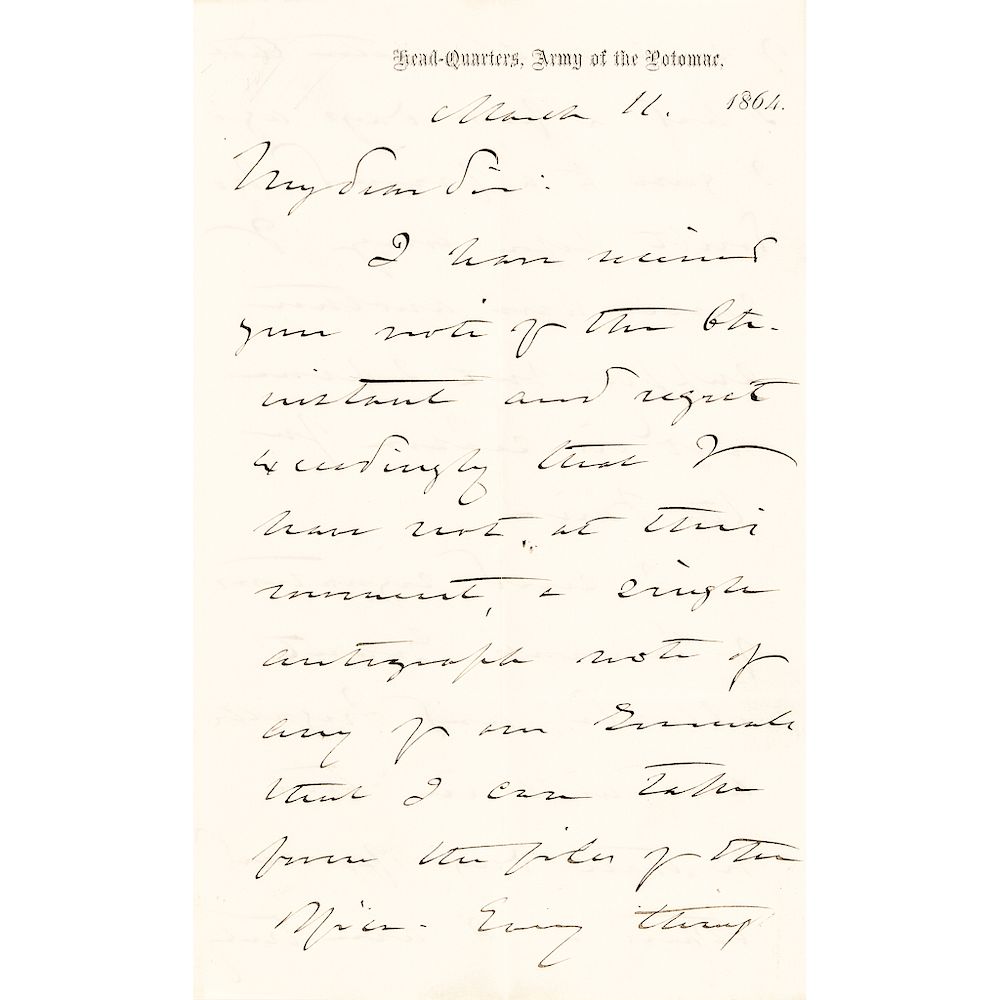 Head-Quarters, Army of the Potomac,
March 11. 1864.
My dear Sir:
I have received
your note of the 6th.
instant and regret
exceedingly that I
have not, at this
moment, a single
autograph note of
any of our Generals
that I can take
from the files of the
Office. Every thing